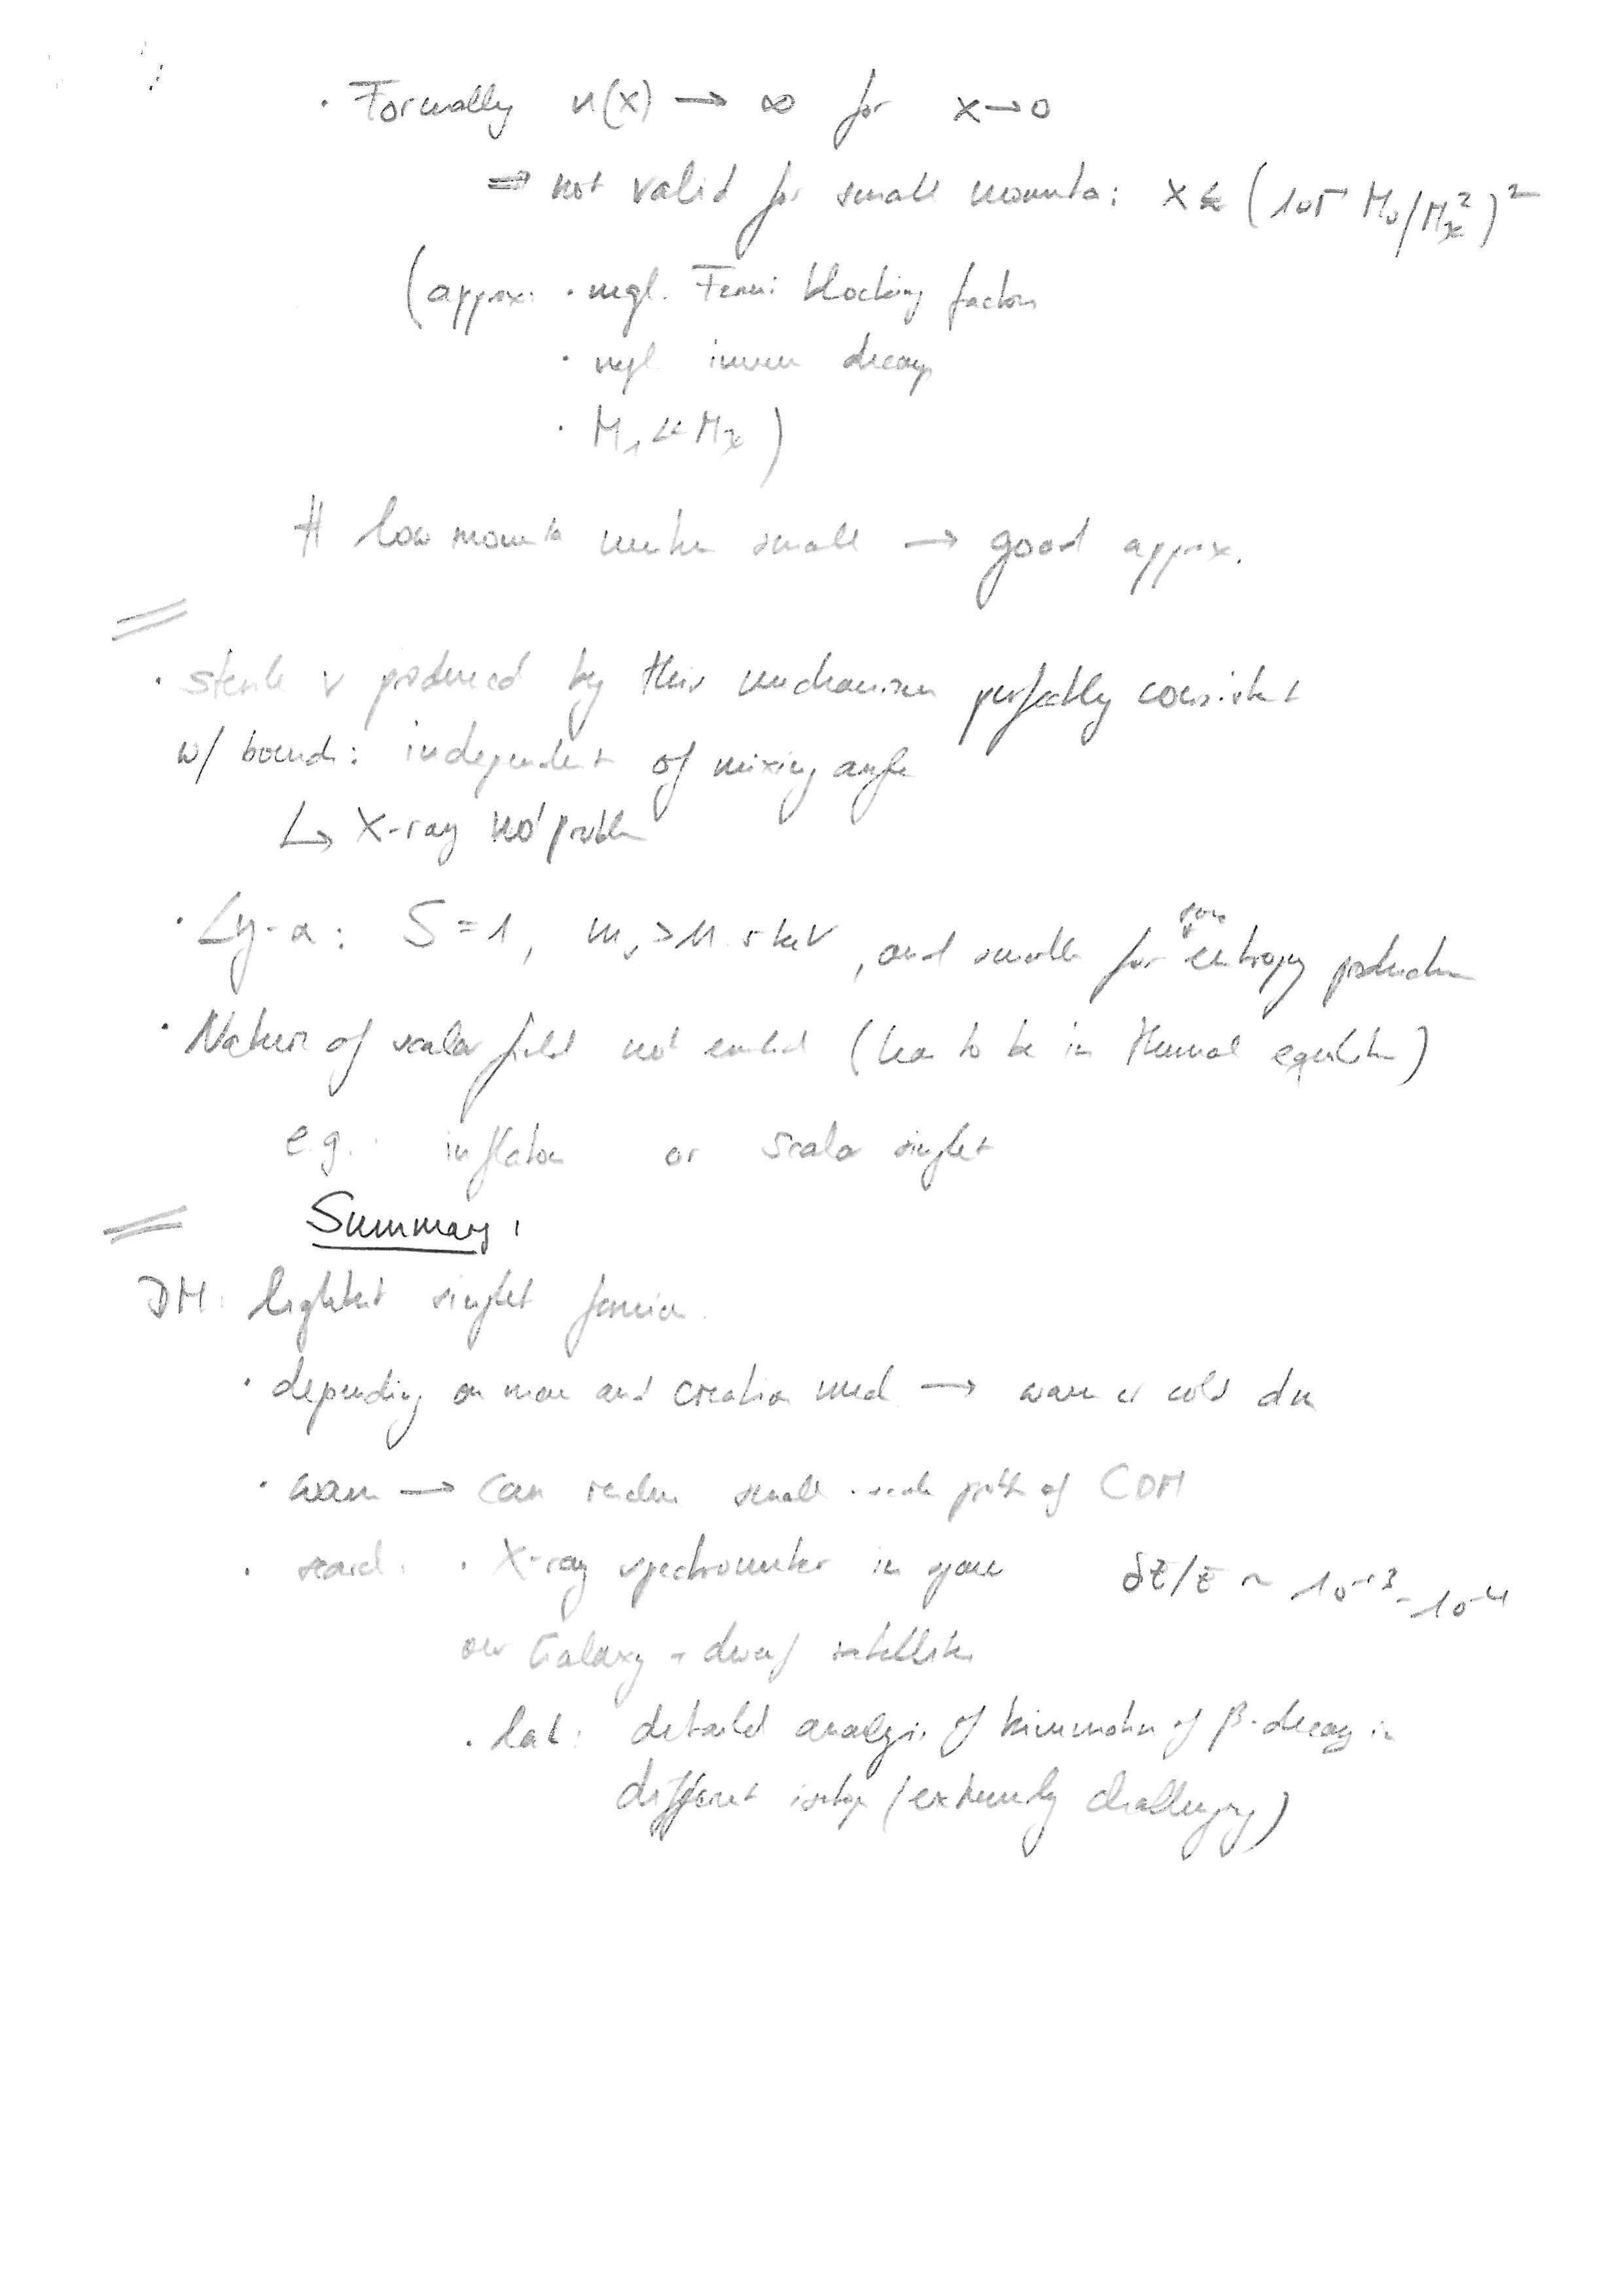 · Formally n(x) → ∞ for x → 0
⇒ not valid for small momenta: x ≲ ( M₀/M_χ²)²
(approx: · negl. Fermi blocking factors
· negl. inverse decays
· M₁ ≪ M_χ)
# low momenta small → good approx.
· sterile ν produced by this mechanism perfectly consistent
w/ bounds: independent of mixing angle
↳ X-ray no problem
· Ly-α: S = 1, m_s > keV, and smaller for some entropy production
· Nature of scalar field not (has to be in thermal equilibrium)
e.g.: inflaton or scalar singlet
Summary:
DM: lightest singlet fermion.
· depending on mass and creation mech → warm or cold dm
· warm → can reduce small-scale probl. of CDM
· search: · X-ray spectrometer in space δE/E ~ 10⁻³ - 10⁻⁴
our Galaxy + dwarf satellites
· lab: detailed analysis of kinematics of β-decay in
different isotopes (extremely challenging)